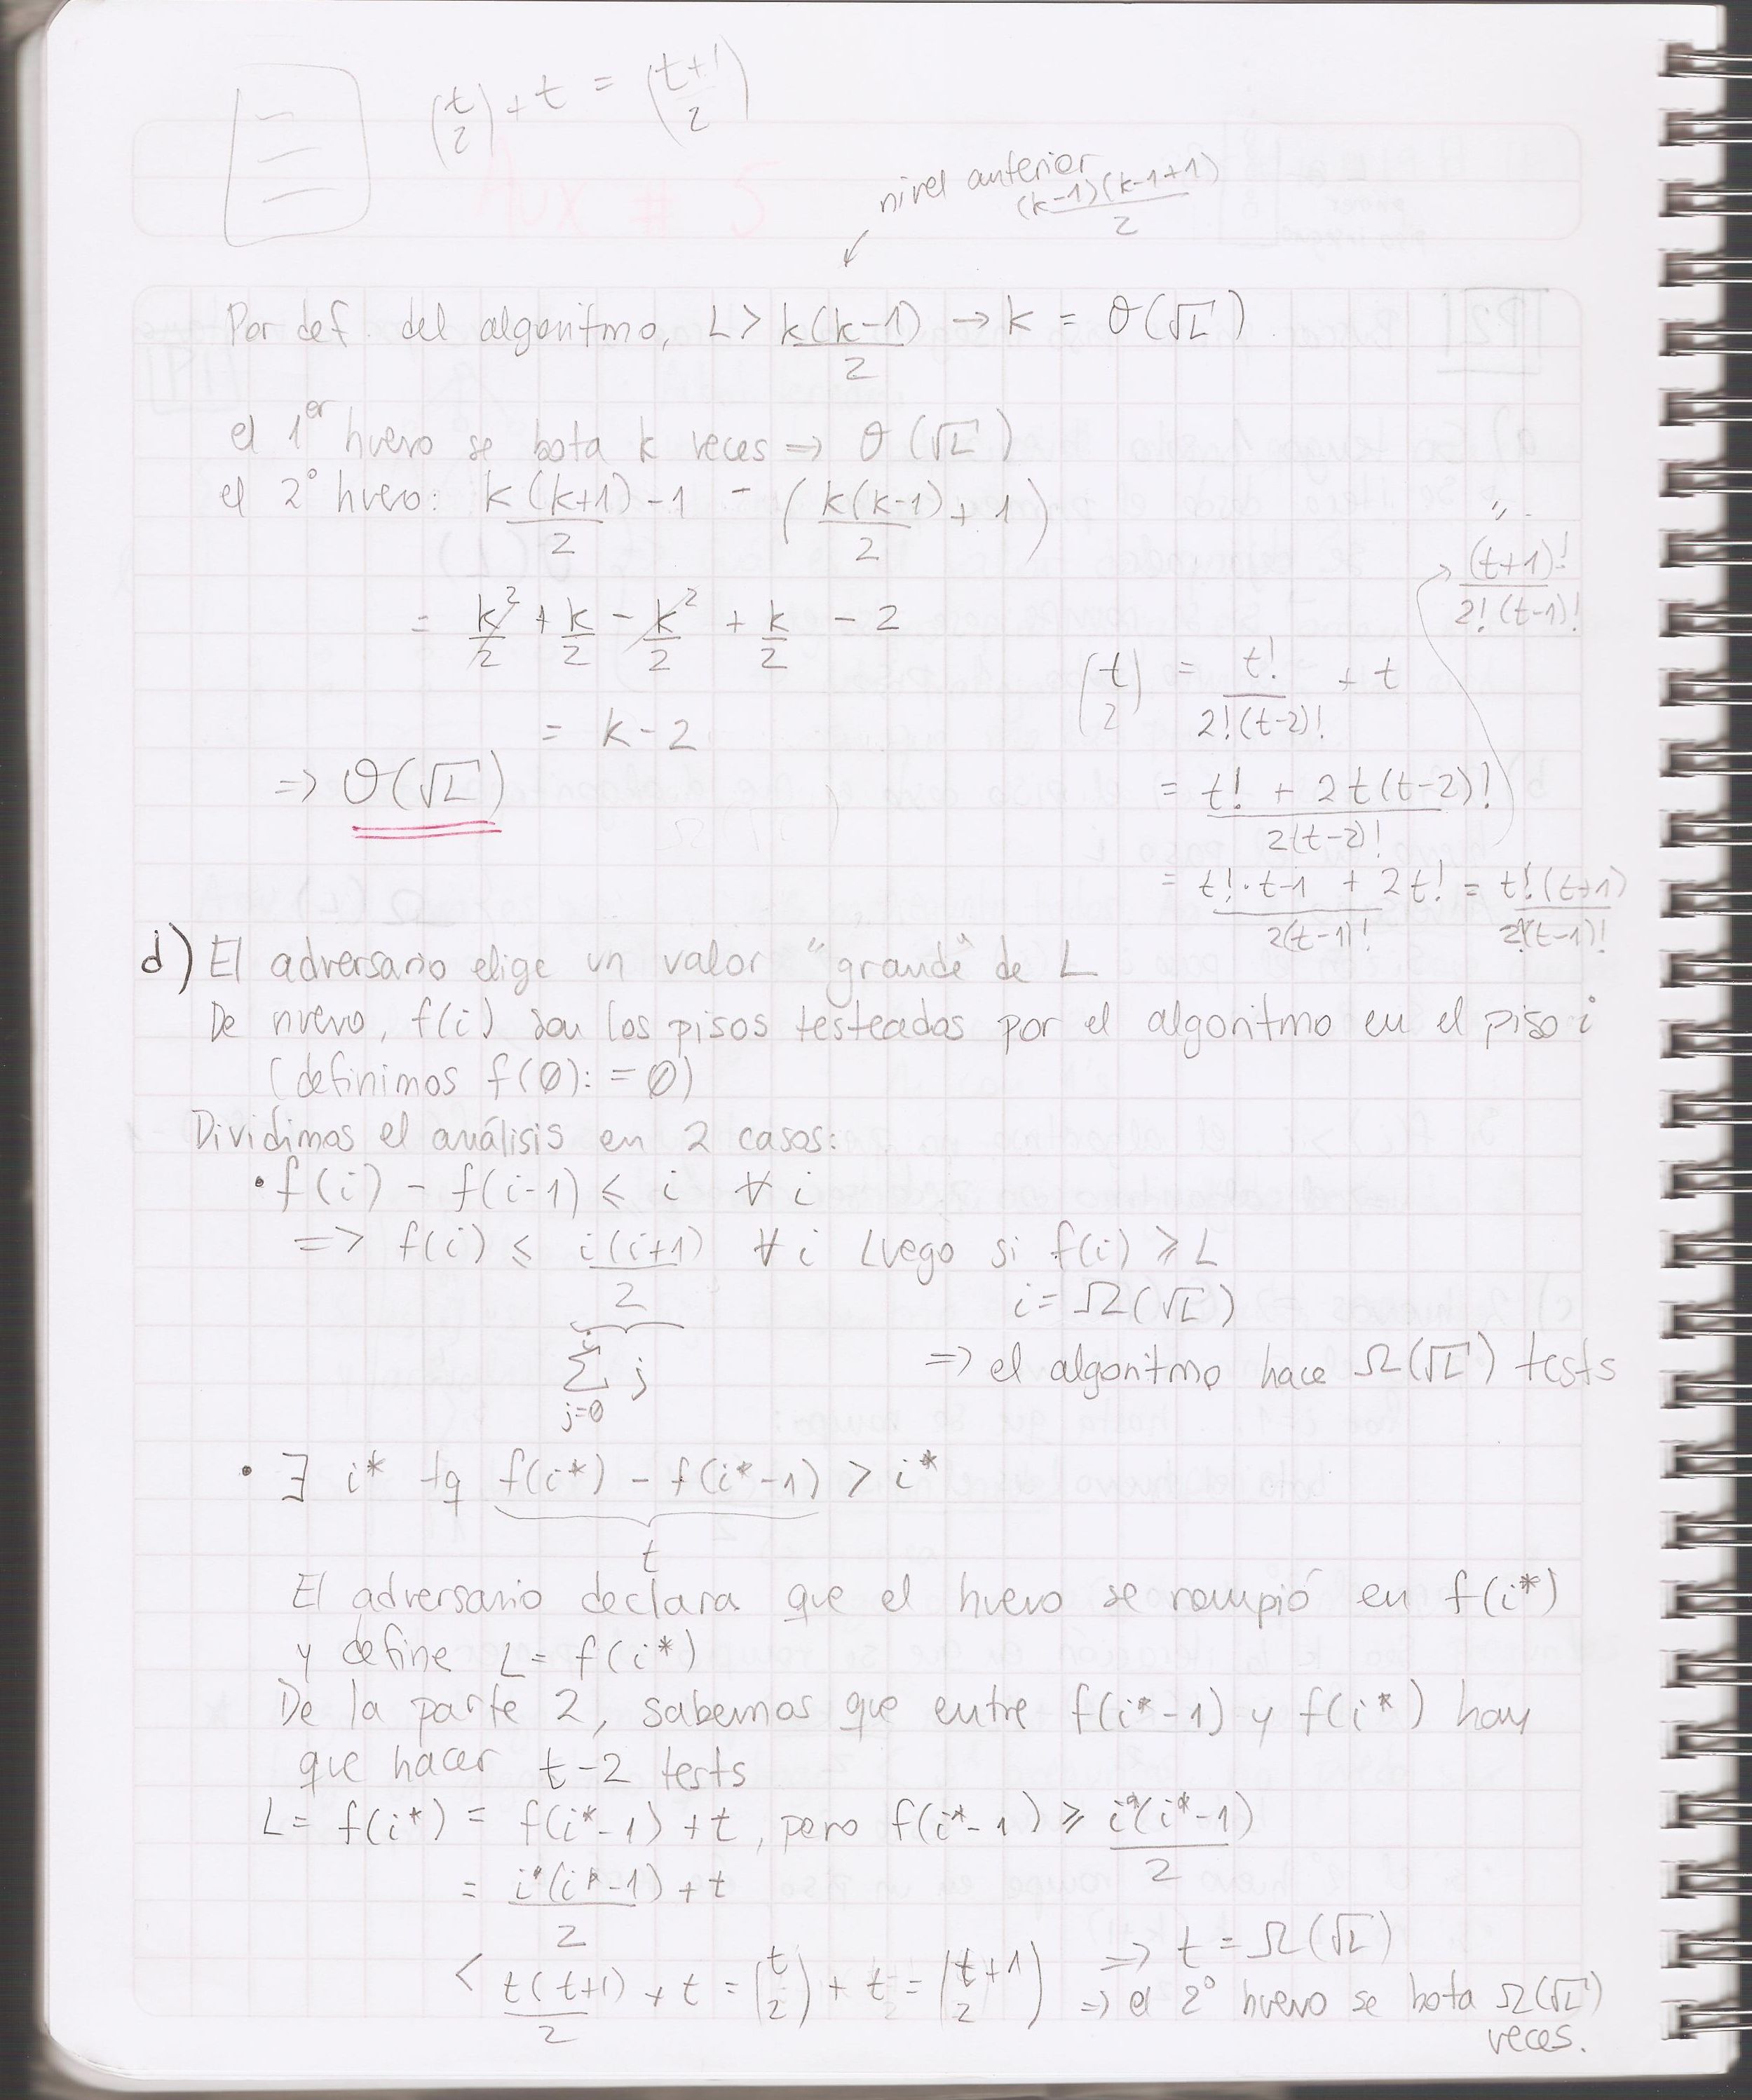 (t 2) + t = (t+1 2)
nivel anterior
(k-1)(k-1+1)/2
↙
Por def. del algoritmo, L > k(k-1)/2 → k = O(√L).
el 1er huevo se bota k veces ⇒ O(√L)
el 2° huevo: k(k+1)/2 - 1 - (k(k-1)/2 + 1)
= k²/2 + k/2 - k²/2 + k/2 - 2
= k-2
⇒ O(√L)
(t+1)!/2!(t-1)!
(t 2) = t!/2!(t-2)! + t
= t! + 2t(t-2)!/2(t-2)!
= t!·t-1 + 2t!/2(t-1)! = t!(t+1)/2!(t-1)!
d) El adversario elige un valor "grande" de L
De nuevo, f(i) son los pisos testeados por el algoritmo en el piso i
(definimos f(0) := 0)
Dividimos el análisis en 2 casos:
• f(i) - f(i-1) ≤ i ∀ i
⇒ f(i) ≤ i(i+1)/2 ∀ i Luego si f(i) ≥ L
i = Ω(√L)
∑ j=0 i j
⇒ el algoritmo hace Ω(√L) tests
• ∃ i* tq f(i*) - f(i*-1) > i*
t
El adversario declara que el huevo se rompió en f(i*)
y define L = f(i*)
De la parte 2, sabemos que entre f(i*-1) y f(i*) hay
que hacer t-2 tests
L = f(i*) = f(i*-1) + t, pero f(i*-1) ≥ i*(i*-1)/2
= i*(i*-1)/2 + t
< t(t+1)/2 + t = (t 2) + t = (t+1 2) ⇒ t = Ω(√L)
⇒ el 2° huevo se bota Ω(√L)
veces.